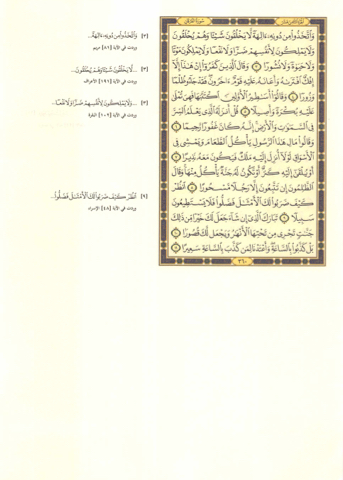 الجزء الثامن عشر
سورة الفرقان
وَٱتَّخَذُوا۟ مِن دُونِهِۦٓ ءَالِهَةً لَّا يَخْلُقُونَ شَيْـًٔا وَهُمْ يُخْلَقُونَ
وَلَا يَمْلِكُونَ لِأَنفُسِهِمْ ضَرًّا وَلَا نَفْعًا وَلَا يَمْلِكُونَ مَوْتًا
وَلَا حَيَوٰةً وَلَا نُشُورًا ٣ وَقَالَ ٱلَّذِينَ كَفَرُوٓا۟ إِنْ هَـٰذَآ إِلَّآ
إِفْكٌ ٱفْتَرَىٰهُ وَأَعَانَهُۥ عَلَيْهِ قَوْمٌ ءَاخَرُونَ فَقَدْ جَآءُو ظُلْمًا
وَزُورًا ٤ وَقَالُوٓا۟ أَسَـٰطِيرُ ٱلْأَوَّلِينَ ٱكْتَتَبَهَا فَهِىَ تُمْلَىٰ
عَلَيْهِ بُكْرَةً وَأَصِيلًا ٥ قُلْ أَنزَلَهُ ٱلَّذِى يَعْلَمُ ٱلسِّرَّ
فِى ٱلسَّمَـٰوَٰتِ وَٱلْأَرْضِ إِنَّهُۥ كَانَ غَفُورًا رَّحِيمًا ٦
وَقَالُوا۟ مَالِ هَـٰذَا ٱلرَّسُولِ يَأْكُلُ ٱلطَّعَامَ وَيَمْشِى فِى
ٱلْأَسْوَاقِ لَوْلَآ أُنزِلَ إِلَيْهِ مَلَكٌ فَيَكُونَ مَعَهُۥ نَذِيرًا ٧
أَوْ يُلْقَىٰٓ إِلَيْهِ كَنزٌ أَوْ تَكُونُ لَهُۥ جَنَّةٌ يَأْكُلُ مِنْهَا وَقَالَ
ٱلظَّـٰلِمُونَ إِن تَتَّبِعُونَ إِلَّا رَجُلًا مَّسْحُورًا ٨ ٱنظُرْ
كَيْفَ ضَرَبُوا۟ لَكَ ٱلْأَمْثَـٰلَ فَضَلُّوا۟ فَلَا يَسْتَطِيعُونَ
سَبِيلًا ٩ تَبَارَكَ ٱلَّذِىٓ إِن شَآءَ جَعَلَ لَكَ خَيْرًا مِّن ذَٰلِكَ
جَنَّـٰتٍ تَجْرِى مِن تَحْتِهَا ٱلْأَنْهَـٰرُ وَيَجْعَل لَّكَ قُصُورًا ١٠
بَلْ كَذَّبُوا۟ بِٱلسَّاعَةِ وَأَعْتَدْنَا لِمَن كَذَّبَ بِٱلسَّاعَةِ سَعِيرًا ١١
٣٦٠
[٣] وَٱتَّخَذُوا۟ مِن دُونِهِۦٓ ءَالِهَةً..
وردت في الآية [٨١] مريم
[٣] ...لَا يَخْلُقُونَ شَيْـًٔا وَهُمْ يُخْلَقُونَ
وردت في الآية [١٩١] الأعراف
[٣] ...وَلَا يَمْلِكُونَ لِأَنفُسِهِمْ ضَرًّا وَلَا نَفْعًا..
وردت في الآية [١٠٢] البقرة
[٩] ٱنظُرْ كَيْفَ ضَرَبُوا۟ لَكَ ٱلْأَمْثَـٰلَ فَضَلُّوا۟..
وردت في الآية [٤٨] الإسراء